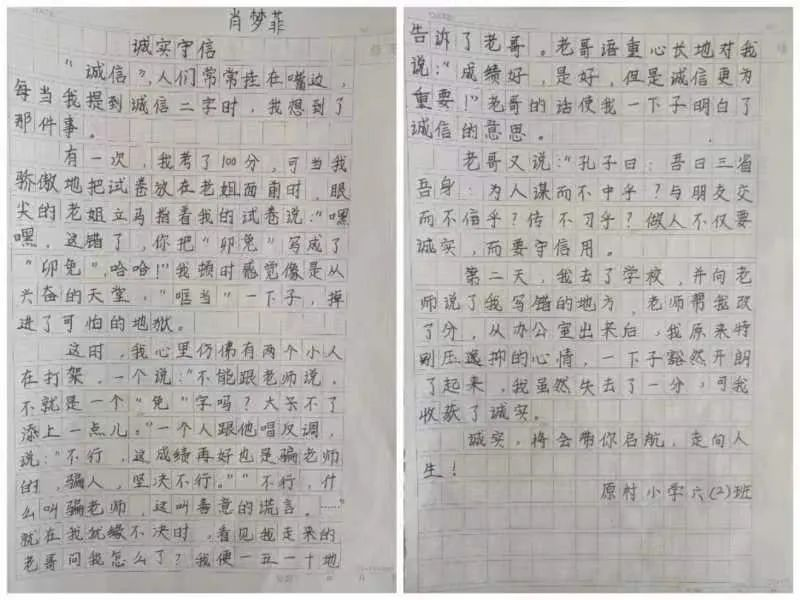 肖梦菲
诚实守信
“诚信”，人们常常挂在嘴边，
每当我提到诚信二字时，我想到了
那件事。
有一次，我考了100分，可当我
骄傲地把试卷放在老姐面前时，眼
尖的老姐立马指着我的试卷说：“嘿
嘿，这错了，你把“卯兔”写成了
“卯免”，哈哈！”我顿时感觉像是从
兴奋的天堂，“哐当”一下子，掉
进了可怕的地狱。
这时，我心里仿佛有两个小人
在打架，一个说：“不能跟老师说，
不就是一个“兔”字吗？大不了
添上一点儿。”一个人跟他唱反调，
说：“不行，这成绩再好也是骗老师
的，骗人，坚决不行。”“不行，什
么叫骗老师，这叫善意的谎言。……”
就在我犹豫不决时，看见我走来的
老哥问我怎么了？我便一五一十地
告诉了老哥。老哥语重心长地对我
说：“成绩好，是好，但是诚信更为
重要！”老哥的话使我一下子明白了
诚信的意思。
老哥又说：“孔子曰：吾日三省
吾身：为人谋而不中乎？与朋友交
而不信乎？传不习乎？做人不仅要
诚实，而要守信用。
第二天，我去了学校，并向老
师说了我写错的地方，老师帮我改
了分，从办公室出来后，我原来特
别压抑的心情，一下子豁然开朗
了起来，我虽然失去了一分，可我
收获了诚实。
诚实，将会带你启航，走向人
生！
原村小学六(2)班